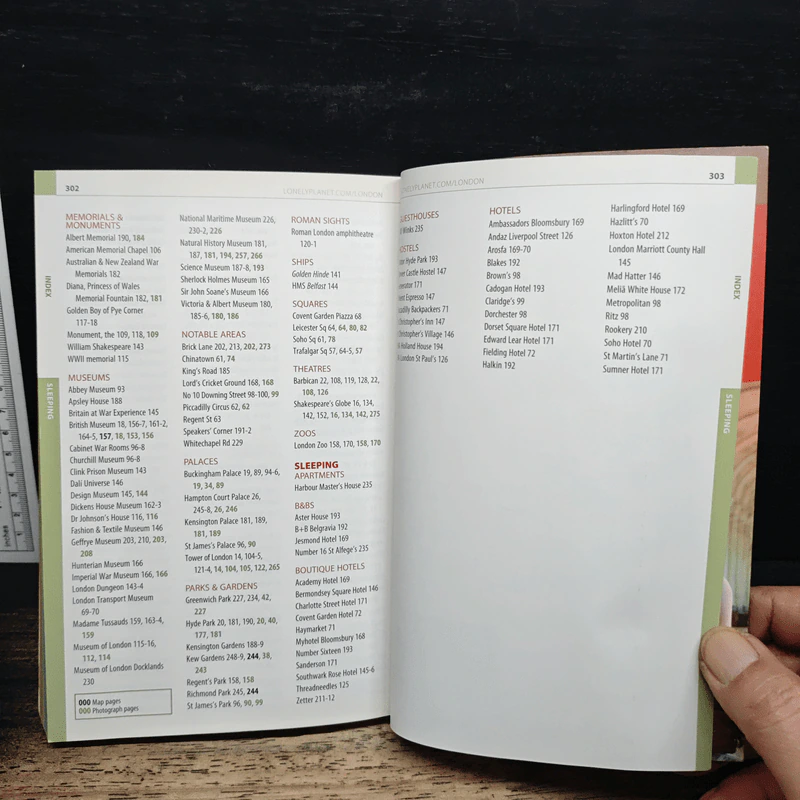 302
LONELYPLANET.COM/LONDON
INDEX
SLEEPING
MEMORIALS &
MONUMENTS
Albert Memorial 190, 184
American Memorial Chapel 106
Australian & New Zealand War
Memorials 182
Diana, Princess of Wales
Memorial Fountain 182, 181
Golden Boy of Pye Corner
117-18
Monument, the 109, 118, 109
William Shakespeare 143
WWII memorial 115
MUSEUMS
Abbey Museum 93
Apsley House 188
Britain at War Experience 145
British Museum 18, 156-7, 161-2,
164-5, 157, 18, 153, 156
Cabinet War Rooms 96-8
Churchill Museum 96-8
Clink Prison Museum 143
Dalí Universe 146
Design Museum 145, 144
Dickens House Museum 162-3
Dr Johnson's House 116, 116
Fashion & Textile Museum 146
Geffrye Museum 203, 210, 203,
208
Hunterian Museum 166
Imperial War Museum 166, 166
London Dungeon 143-4
London Transport Museum
69-70
Madame Tussauds 159, 163-4,
159
Museum of London 115-16,
112, 114
Museum of London Docklands
230
000 Map pages
000 Photograph pages
National Maritime Museum 226,
230-2, 226
Natural History Museum 181,
187, 181, 194, 257, 266
Science Museum 187-8, 193
Sherlock Holmes Museum 165
Sir John Soane's Museum 166
Victoria & Albert Museum 180,
185-6, 180, 186
NOTABLE AREAS
Brick Lane 202, 213, 202, 273
Chinatown 61, 74
King's Road 185
Lord's Cricket Ground 168, 168
No 10 Downing Street 98-100, 99
Piccadilly Circus 62, 62
Regent St 63
Speakers' Corner 191-2
Whitechapel Rd 229
PALACES
Buckingham Palace 19, 89, 94-6,
19, 34, 89
Hampton Court Palace 26,
245-8, 26, 246
Kensington Palace 181, 189,
181, 189
St James's Palace 96, 90
Tower of London 14, 104-5,
121-4, 14, 104, 105, 122, 265
PARKS & GARDENS
Greenwich Park 227, 234, 42,
227
Hyde Park 20, 181, 190, 20, 40,
177, 181
Kensington Gardens 188-9
Kew Gardens 248-9, 244, 38,
243
Regent's Park 158, 158
Richmond Park 245, 244
St James's Park 96, 90, 99
ROMAN SIGHTS
Roman London amphitheatre
120-1
SHIPS
Golden Hinde 141
HMS Belfast 144
SQUARES
Covent Garden Piazza 68
Leicester Sq 64, 64, 80, 82
Soho Sq 61, 78
Trafalgar Sq 57, 64-5, 57
THEATRES
Barbican 22, 108, 119, 128, 22,
108, 126
Shakespeare's Globe 16, 134,
142, 152, 16, 134, 142, 275
ZOOS
London Zoo 158, 170, 158, 170
SLEEPING
APARTMENTS
Harbour Master's House 235
B&BS
Aster House 193
B+B Belgravia 192
Jesmond Hotel 169
Number 16 St Alfege's 235
BOUTIQUE HOTELS
Academy Hotel 169
Bermondsey Square Hotel 146
Charlotte Street Hotel 171
Covent Garden Hotel 72
Haymarket 71
Myhotel Bloomsbury 168
Number Sixteen 193
Sanderson 171
Southwark Rose Hotel 145-6
Threadneedles 125
Zetter 211-12
LONELYPLANET.COM/LONDON
303
GUESTHOUSES
Winks 235
HOSTELS
Hyde Park 193
Castle Hostel 147
171
Espresso 147
Backpackers 71
Christopher's Inn 147
Christopher's Village 146
Holland House 194
London St Paul's 126
HOTELS
Ambassadors Bloomsbury 169
Andaz Liverpool Street 126
Arosfa 169-70
Blakes 192
Brown's 98
Cadogan Hotel 193
Claridge's 99
Dorchester 98
Dorset Square Hotel 171
Edward Lear Hotel 171
Fielding Hotel 72
Halkin 192
Harlingford Hotel 169
Hazlitt's 70
Hoxton Hotel 212
London Marriott County Hall
145
Mad Hatter 146
Meliã White House 172
Metropolitan 98
Ritz 98
Rookery 210
Soho Hotel 70
St Martin's Lane 71
Sumner Hotel 171
INDEX
SLEEPING
inches